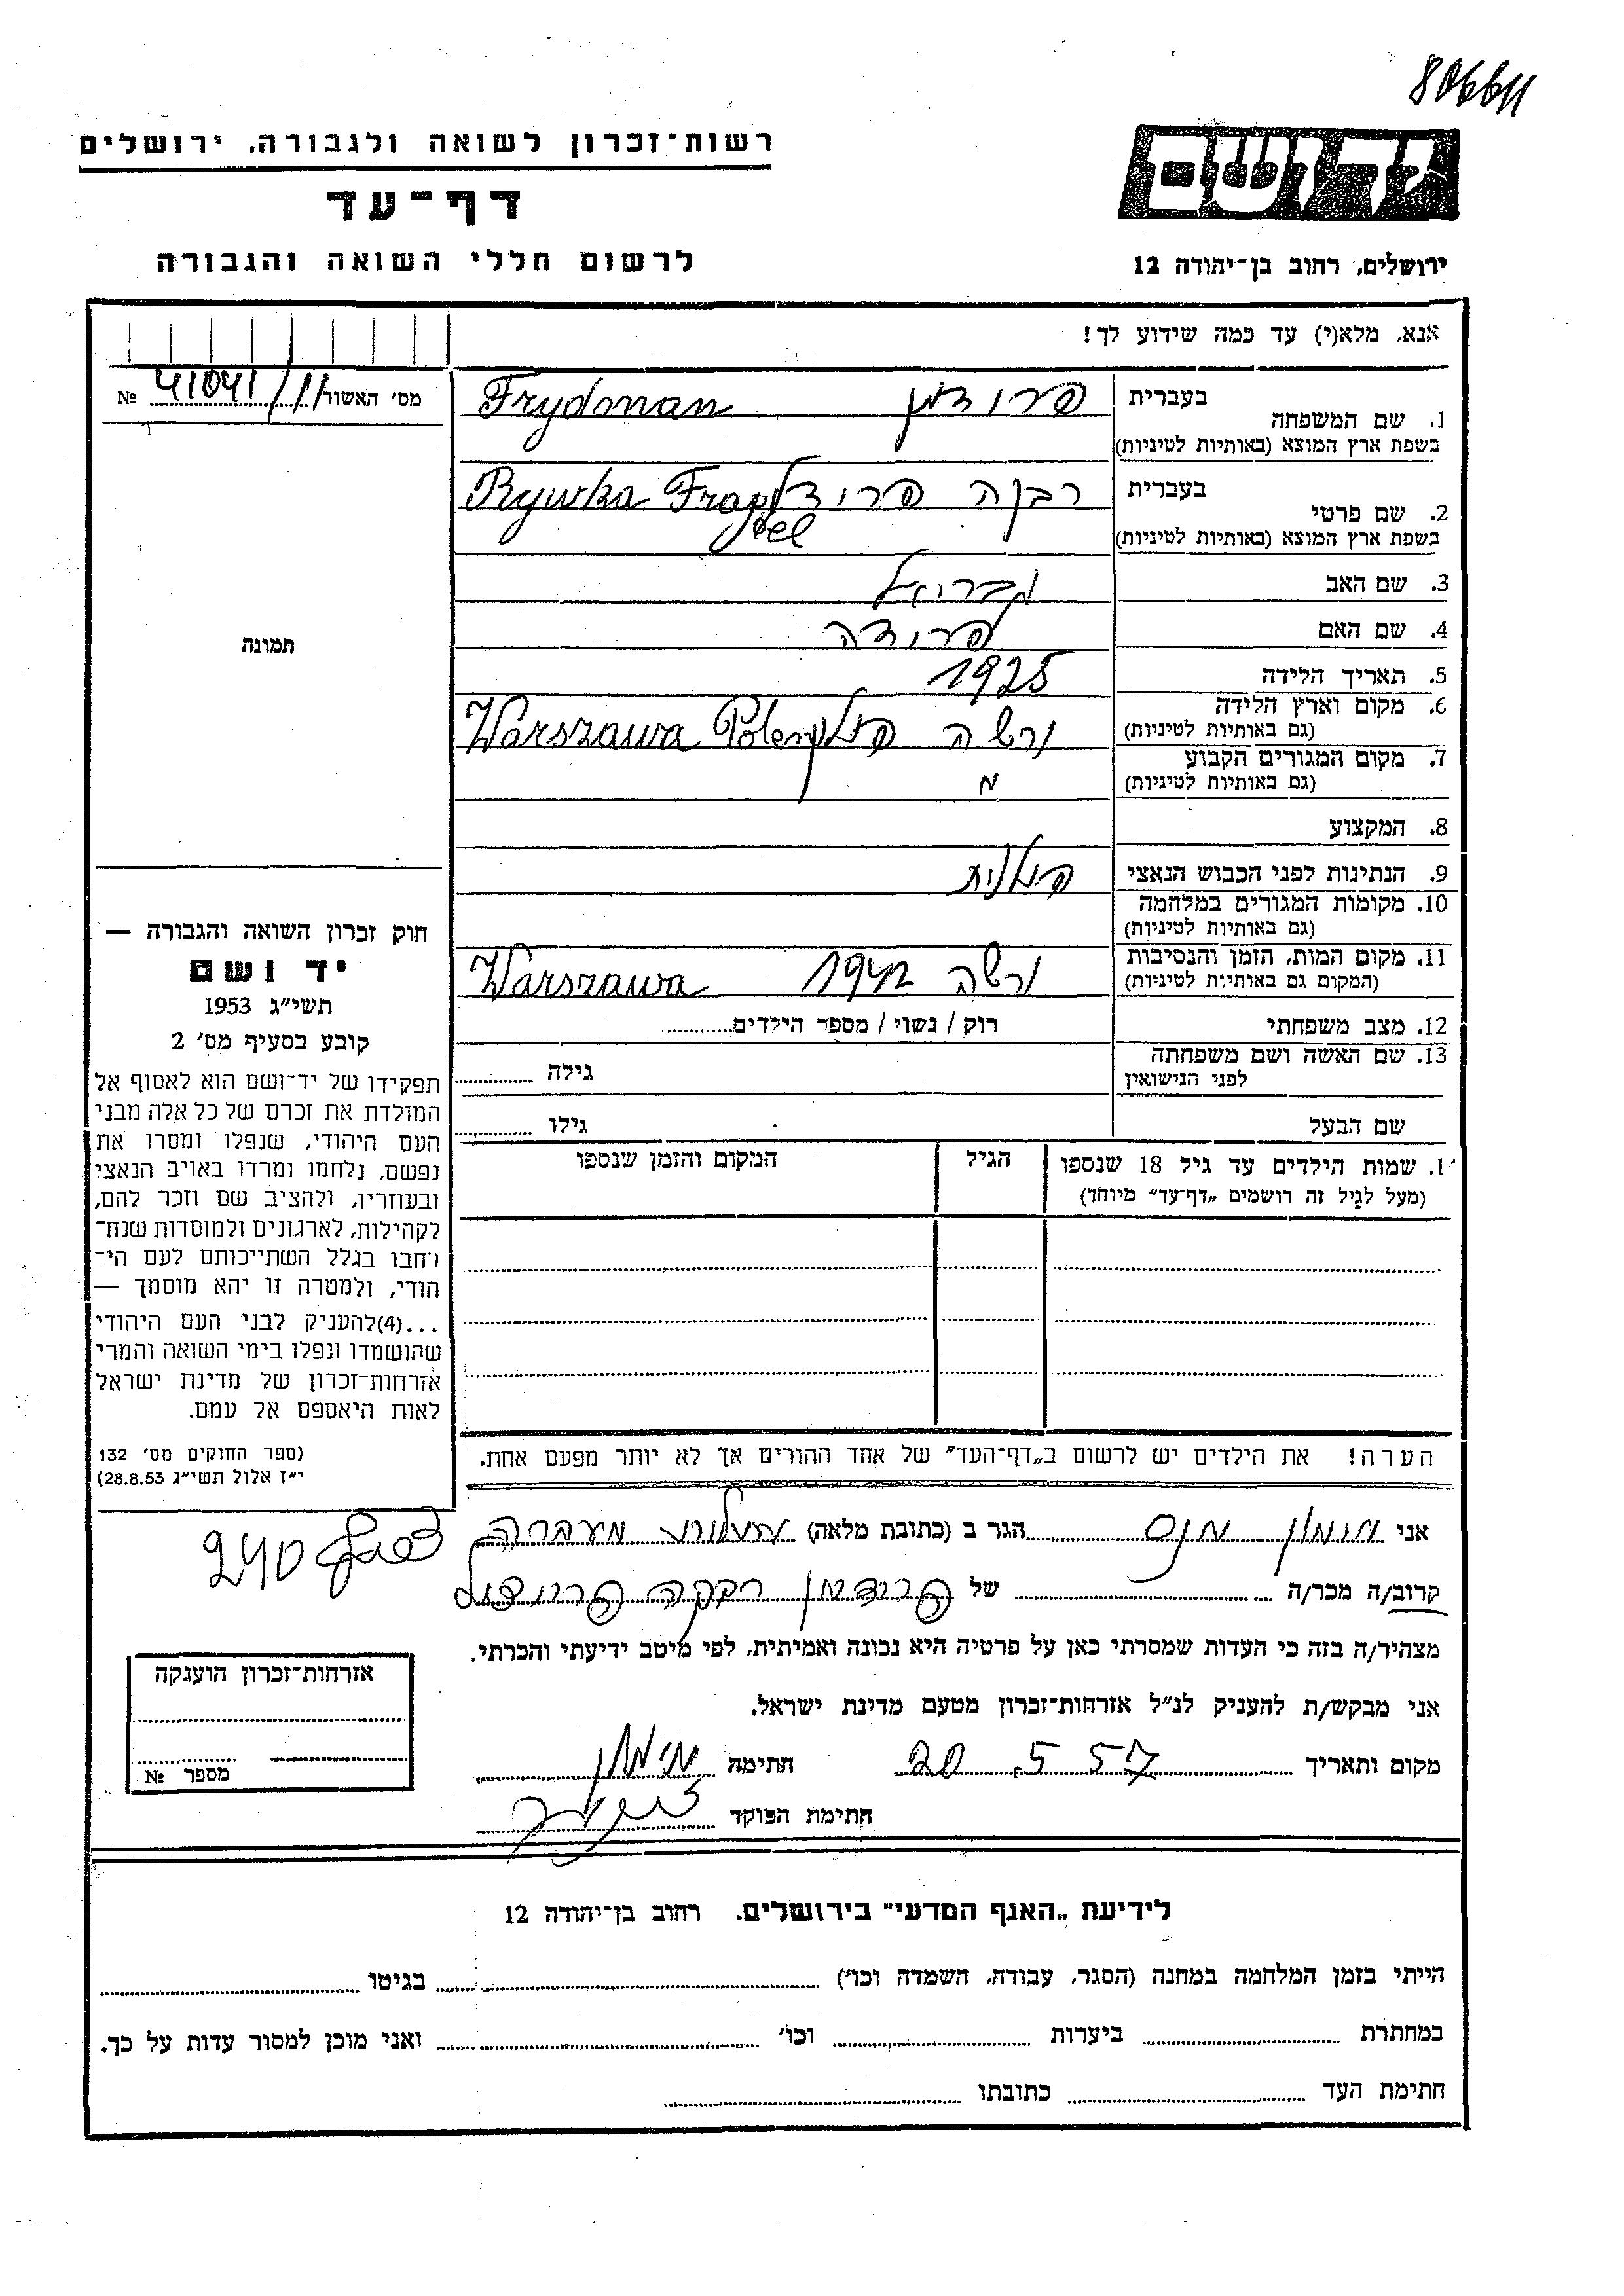 806611
רשות־זכרון לשואה ולגבורה, ירושלים
יד ושם
דף־עד
לרשום חללי השואה והגבורה
ירושלים, רחוב בן־יהודה 12
אנא, מלא(י) עד כמה שידוע לך!
מס׳ האשור 41041/11 №
1. שם המשפחה
בעברית פרידמן
בשפת ארץ המוצא (באותיות לטיניות) Frydman
2. שם פרטי
בעברית רבקה פריידל
בשפת ארץ המוצא (באותיות לטיניות) Rywka Frajdel
3. שם האב גבריאל
4. שם האם פרידה
5. תאריך הלידה 1925
6. מקום וארץ הלידה ורשה פולין
(גם באותיות לטיניות) Warszawa Polen
7. מקום המגורים הקבוע
(גם באותיות לטיניות) "
8. המקצוע
9. הנתינות לפני הכבוש הנאצי פולנית
10. מקומות המגורים במלחמה
(גם באותיות לטיניות)
11. מקום המות, הזמן והנסיבות ורשה 1942
(המקום גם באותיות לטיניות) Warszawa
12. מצב משפחתי רוק / נשוי / מספר הילדים
13. שם האשה ושם משפחתה
לפני הנישואין גילה
שם הבעל גילו
תמונה
חוק זכרון השואה והגבורה —
יד ושם
תשי״ג 1953
קובע בסעיף מס׳ 2
תפקידו של יד־ושם הוא לאסוף אל
המולדת את זכרם של כל אלה מבני
העם היהודי, שנפלו ומסרו את
נפשם, נלחמו ומרדו באויב הנאצי
ובעוזריו, ולהציב שם וזכר להם,
לקהילות, לארגונים ולמוסדות שנח־
רחבו בגלל השתייכותם לעם הי־
הודי, ולמטרה זו יהא מוסמך —
...(4)להעניק לבני העם היהודי
שהושמדו ונפלו בימי השואה והמרי
אזרחות־זכרון של מדינת ישראל
לאות היאספם אל עמם.
(ספר החוקים מס׳ 132
י״ז אלול תשי״ג 28.8.53)
1. שמות הילדים עד גיל 18 שנספו
(מעל לגיל זה רושמים „דף־עד״ מיוחד)
הגיל
המקום והזמן שנספו
הערה! את הילדים יש לרשום ב„דף־העד״ של אחד ההורים אך לא יותר מפעם אחת.
אני מימון הגר ב (כתובת מלאה) מעברה
240
קרוב/ה מכר/ה של פרידמן רבקה פריידל
מצהיר/ה בזה כי העדות שמסרתי כאן על פרטיה היא נכונה ואמיתית, לפי מיטב ידיעתי והכרתי.
אני מבקש/ת להעניק לנ״ל אזרחות־זכרון מטעם מדינת ישראל.
מקום ותאריך 20 5 57 חתימה מימון
חתימת הפוקד
אזרחות־זכרון הוענקה
מספר №
לידיעת „האגף המדעי״ בירושלים. רחוב בן־יהודה 12
הייתי בזמן המלחמה במחנה (הסגר, עבודה, השמדה וכו׳) בגיטו
במחתרת ביערות וכו׳ ואני מוכן למסור עדות על כך.
חתימת העד כתובתו